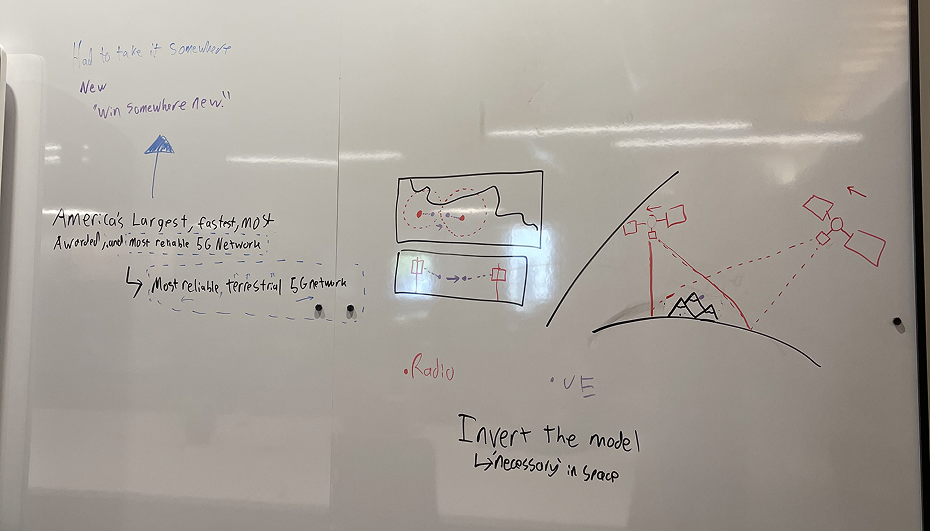 Had to take it somewhere
New
"Win somewhere new."
America's Largest, fastest, most
Awarded, and most reliable 5G Network
Most reliable, terrestrial 5G network
Radio
UE
Invert the model
'necessary' in space